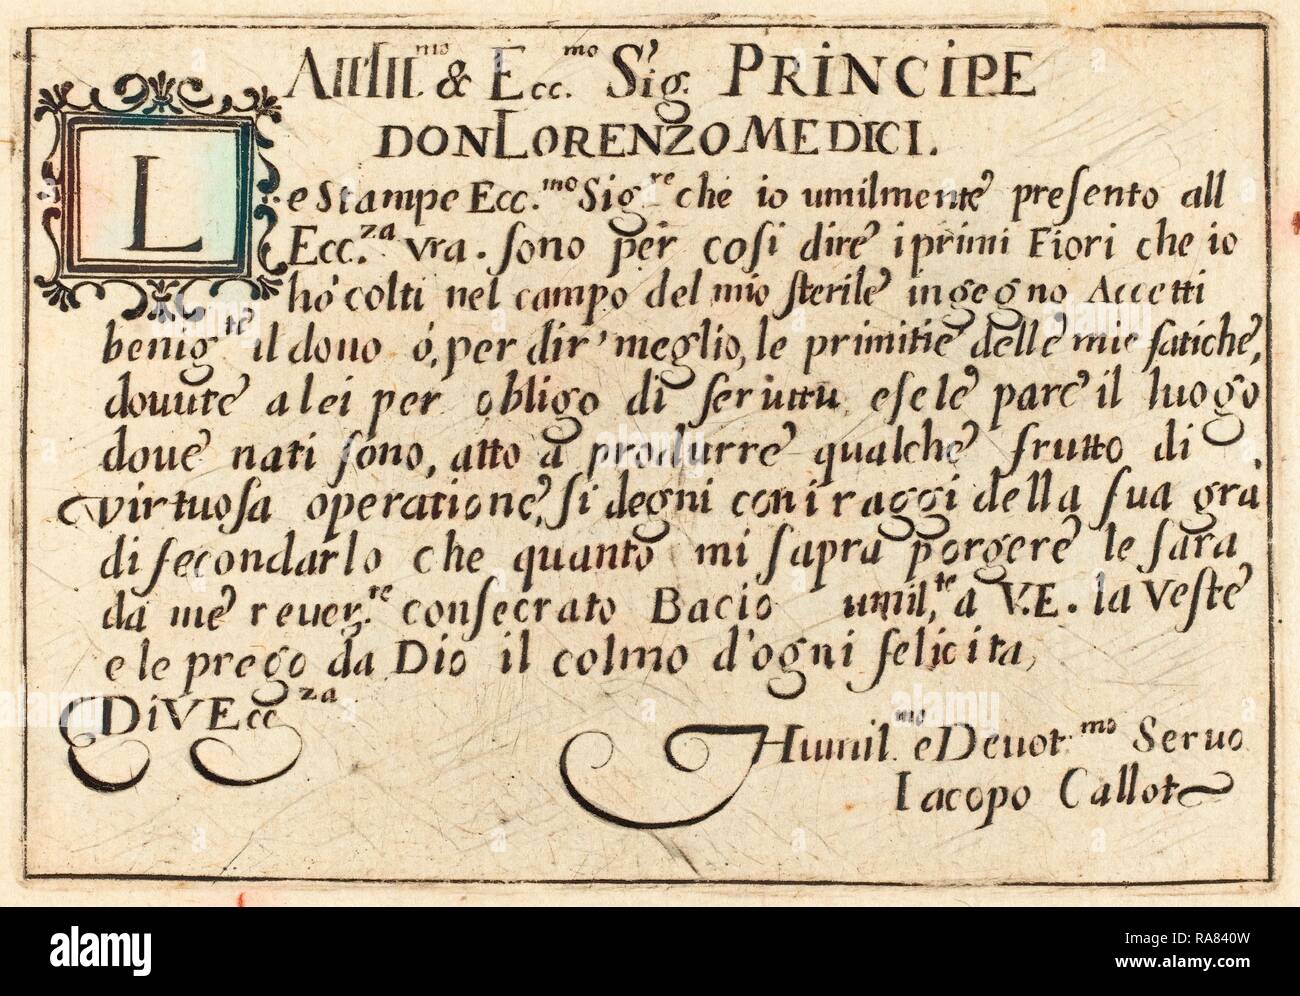 All Ill.mo & Ecc.mo Sig. PRINCIPE
DON LORENZO MEDICI.
L
e Stampe Ecc.mo Sig.re che io umilmente presento all
Ecc.za vra. sono per cosi dire i primi Fiori che io
hó colti nel campo del mio sterile ingegno Accetti
benig.te il dono ó, per dir' meglio, le primitie delle mie fatiche,
douute a lei per obligo di seruittu, e se le pare il luogo
doue nati sono, atto a produrre qualche frutto di
virtuosa operatione, si degni con i raggi della sua gra.
di fecondarlo che quanto mi sapra porgere le sara
da me reuer.te consecrato Bacio umil.te a V.E. la veste
e le prego da Dio il colmo d'ogni felicita,
Di V Ecc.za
Humil.mo e Deuot.mo Seruo
Iacopo Callot
alamy
Image ID: RA840W
www.alamy.com